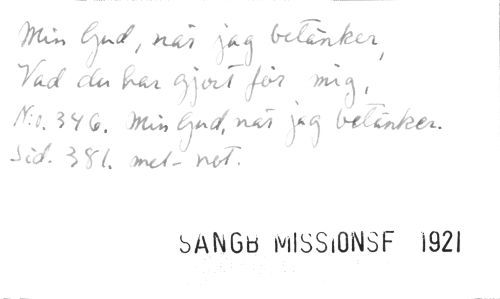 Min Gud, när jag betänker,
Vad du har gjort för mig,
N:o. 346. Min Gud, när jag betänker.
Sid. 381. mel-not.
SANGB MISSIONSF 1921